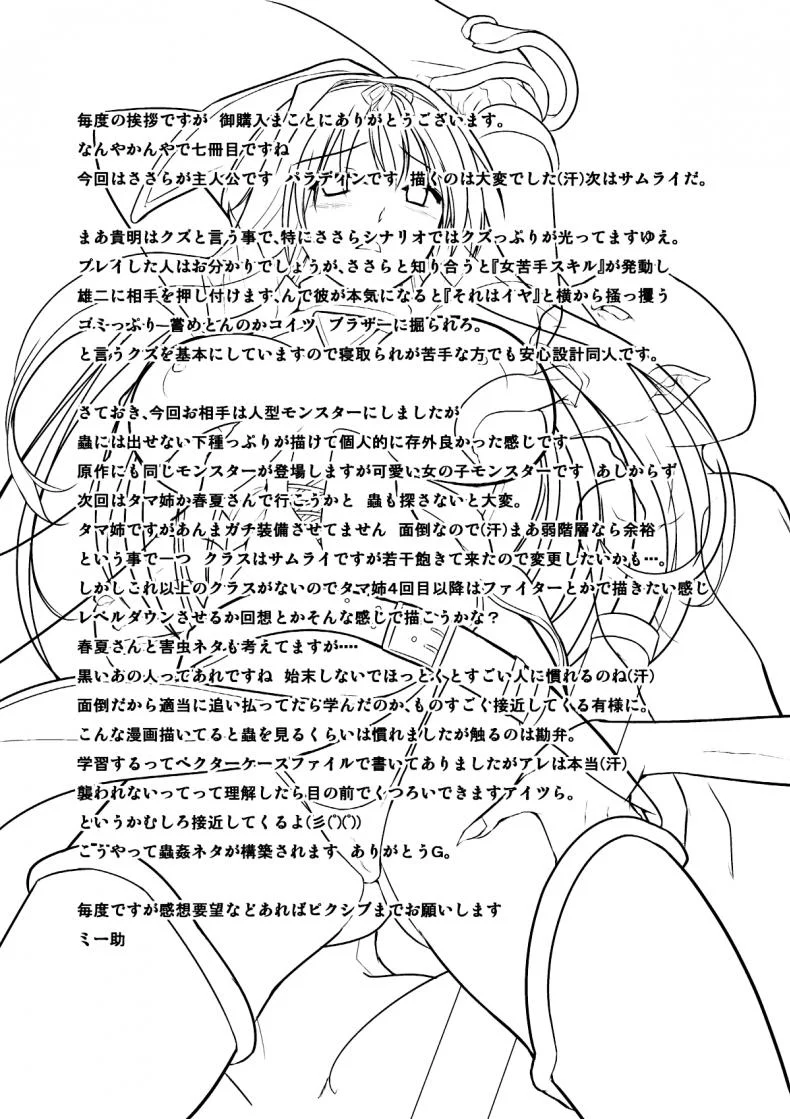 毎度の挨拶ですが 御購入まことにありがとうございます。
なんやかんやで七冊目ですね
今回はささらが主人公です パラディンです 描くのは大変でした(汗)次はサムライだ。
まあ貴明はクズと言う事で、特にささらシナリオではクズっぷりが光ってますゆえ。
プレイした人はお分かりでしょうが、ささらと知り合うと『女苦手スキル』が発動し
雄二に相手を押し付けます、んで彼が本気になると『それはイヤ』と横から掻っ攫う
ゴミっぷり―嘗めとんのかコイツ ブラザーに掘られろ。
と言うクズを基本にしていますので寝取られが苦手な方でも安心設計同人です。
さておき、今回お相手は人型モンスターにしましたが
蟲には出せない下種っぷりが描けて個人的に存外良かった感じです
原作にも同じモンスターが登場しますが可愛い女の子モンスターです あしからず
次回はタマ姉か春夏さんで行こうかと 蟲も探さないと大変。
タマ姉ですがあんまガチ装備させてません 面倒なので(汗)まあ弱階層なら余裕
という事で一つ クラスはサムライですが若干飽きて来たので変更したいかも…。
しかしこれ以上のクラスがないのでタマ姉4回目以降はファイターとかで描きたい感じ
レベルダウンさせるか回想とかそんな感じで描こうかな?
春夏さんと害虫ネタも考えてますが‥‥
黒いあの人ってあれですね 始末しないでほっとくとすごい人に慣れるのね(汗)
面倒だから適当に追い払ってたら学んだのか、ものすごく接近してくる有様に。
こんな漫画描いてると蟲を見るくらいは慣れましたが触るのは勘弁。
学習するってベクターケースファイルで書いてありましたがアレは本当(汗)
襲われないってって理解したら目の前でくつろいできますアイツら。
というかむしろ接近してくるよ(彡(ﾟ)(ﾟ))
こうやって蟲姦ネタが構築されます ありがとうG。
毎度ですが感想要望などあればピクシブまでお願いします
ミー助